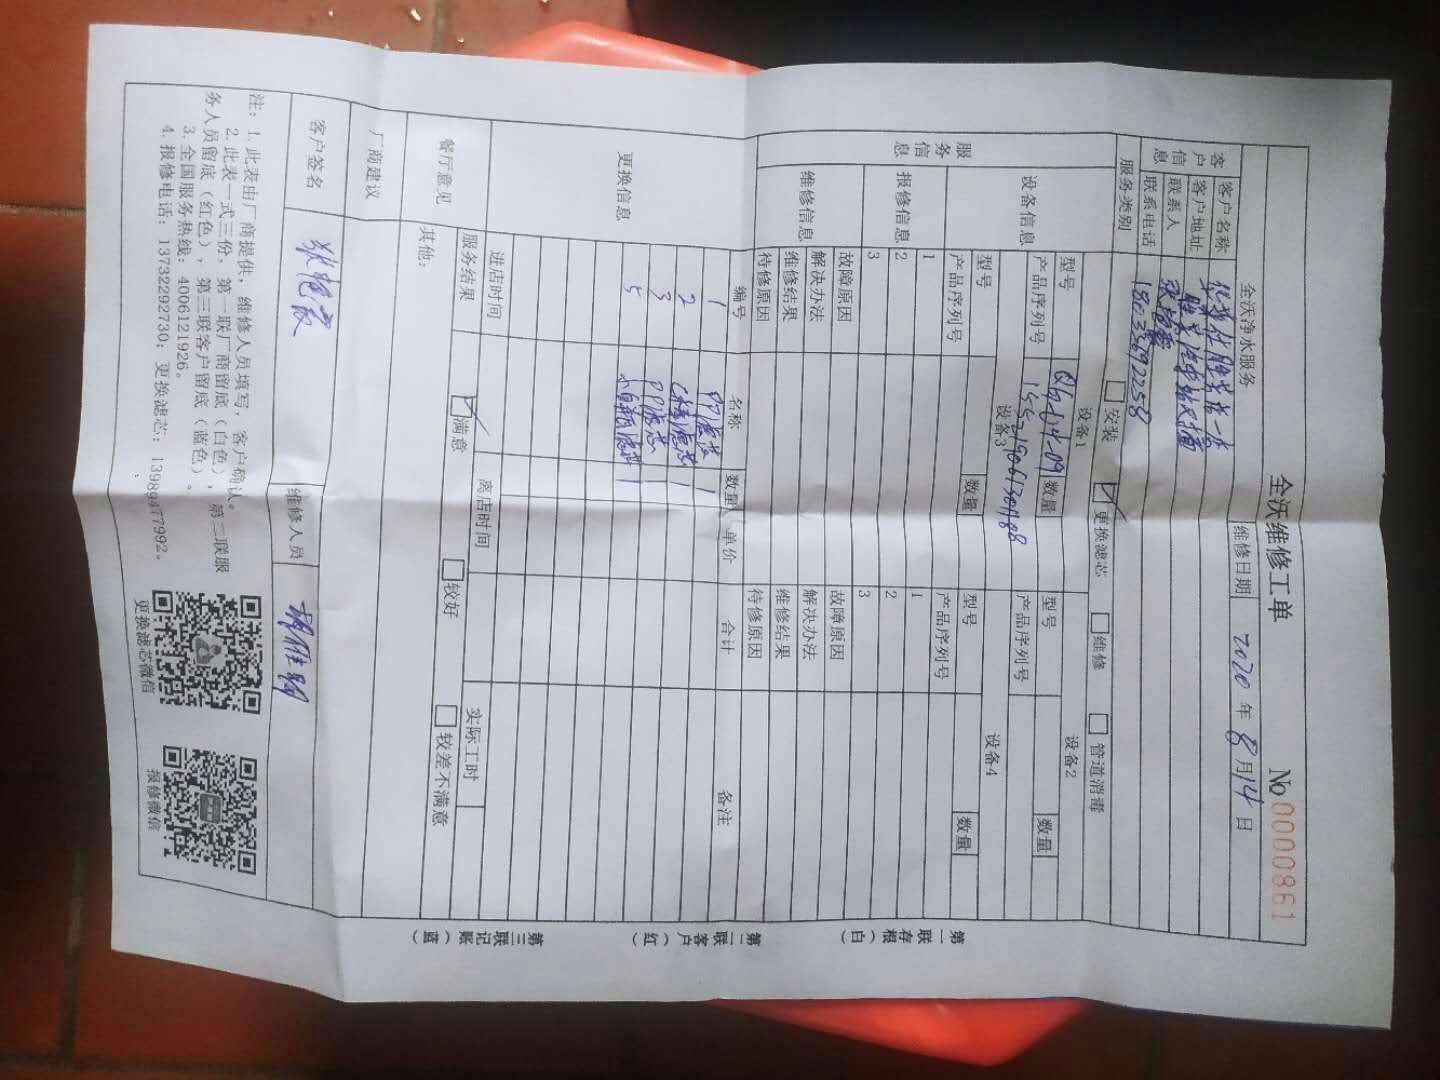 全沃维修工单
No 0000861
全沃净水服务
维修日期 2020 年 8 月 14 日
客户信息
客户名称
客户地址
联系人
联系电话 18033692258
服务类别 安装 更换滤芯 维修 管道消毒
服务信息
设备信息
设备1 设备2
型号 数量 型号 数量
产品序列号 产品序列号
设备3 设备4
型号 数量 型号 数量
产品序列号 产品序列号
报修信息
1 1
2 2
3 3
维修信息
故障原因 故障原因
解决办法 解决办法
维修结果 维修结果
待修原因 待修原因
更换信息
编号 名称 数量 单价 合计 备注
1 PP滤芯 1
2 滤芯 1
3 PP滤芯 1
5 1
进店时间 离店时间 实际工时
餐厅意见
服务结果 满意 较好 较差不满意
其他:
厂商建议
客户签名 维修人员
注: 1. 此表由厂商提供, 维修人员填写, 客户确认。
2. 此表一式三份, 第一联厂商留底(白色), 第二联服
务人员留底(红色), 第三联客户留底(蓝色)。
3. 全国服务热线: 4006121926。
4. 报修电话: 13732292730; 更换滤芯: 13989477992。
更换滤芯微信
报修微信
第一联存根(白)
第二联客户(红)
第三联记账(蓝)